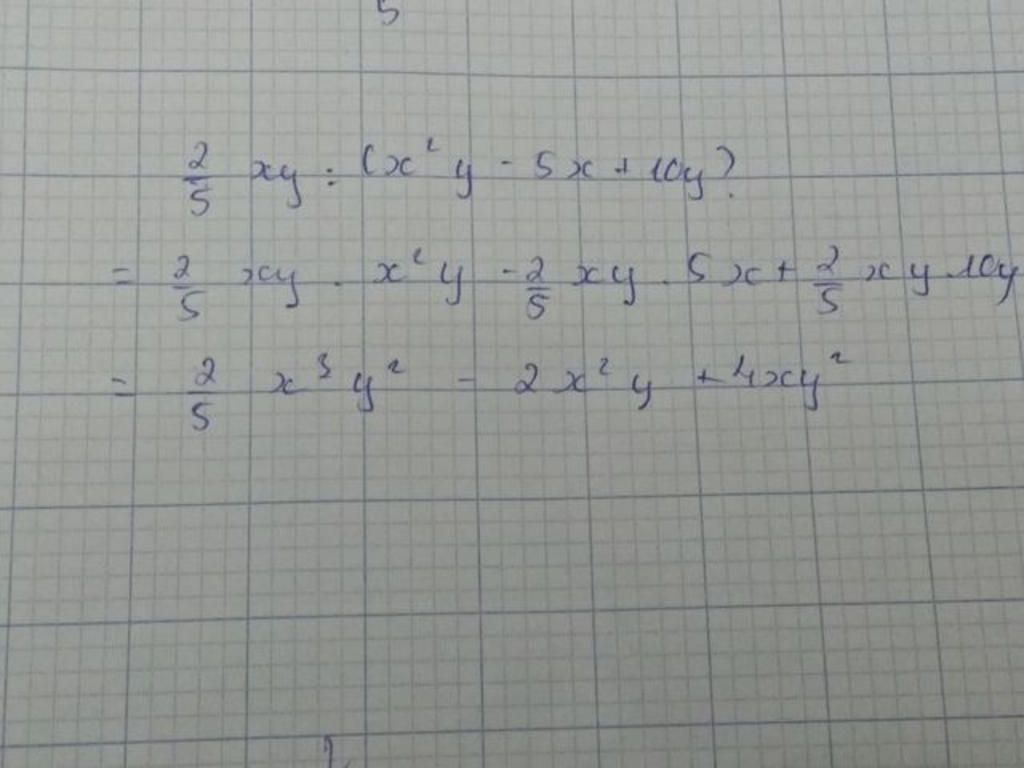 5
2/5 xy : (x² y - 5x + 10y)
= 2/5 xy . x² y - 2/5 xy . 5x + 2/5 xy 10y
= 2/5 x³ y² - 2x² y + 4xy²